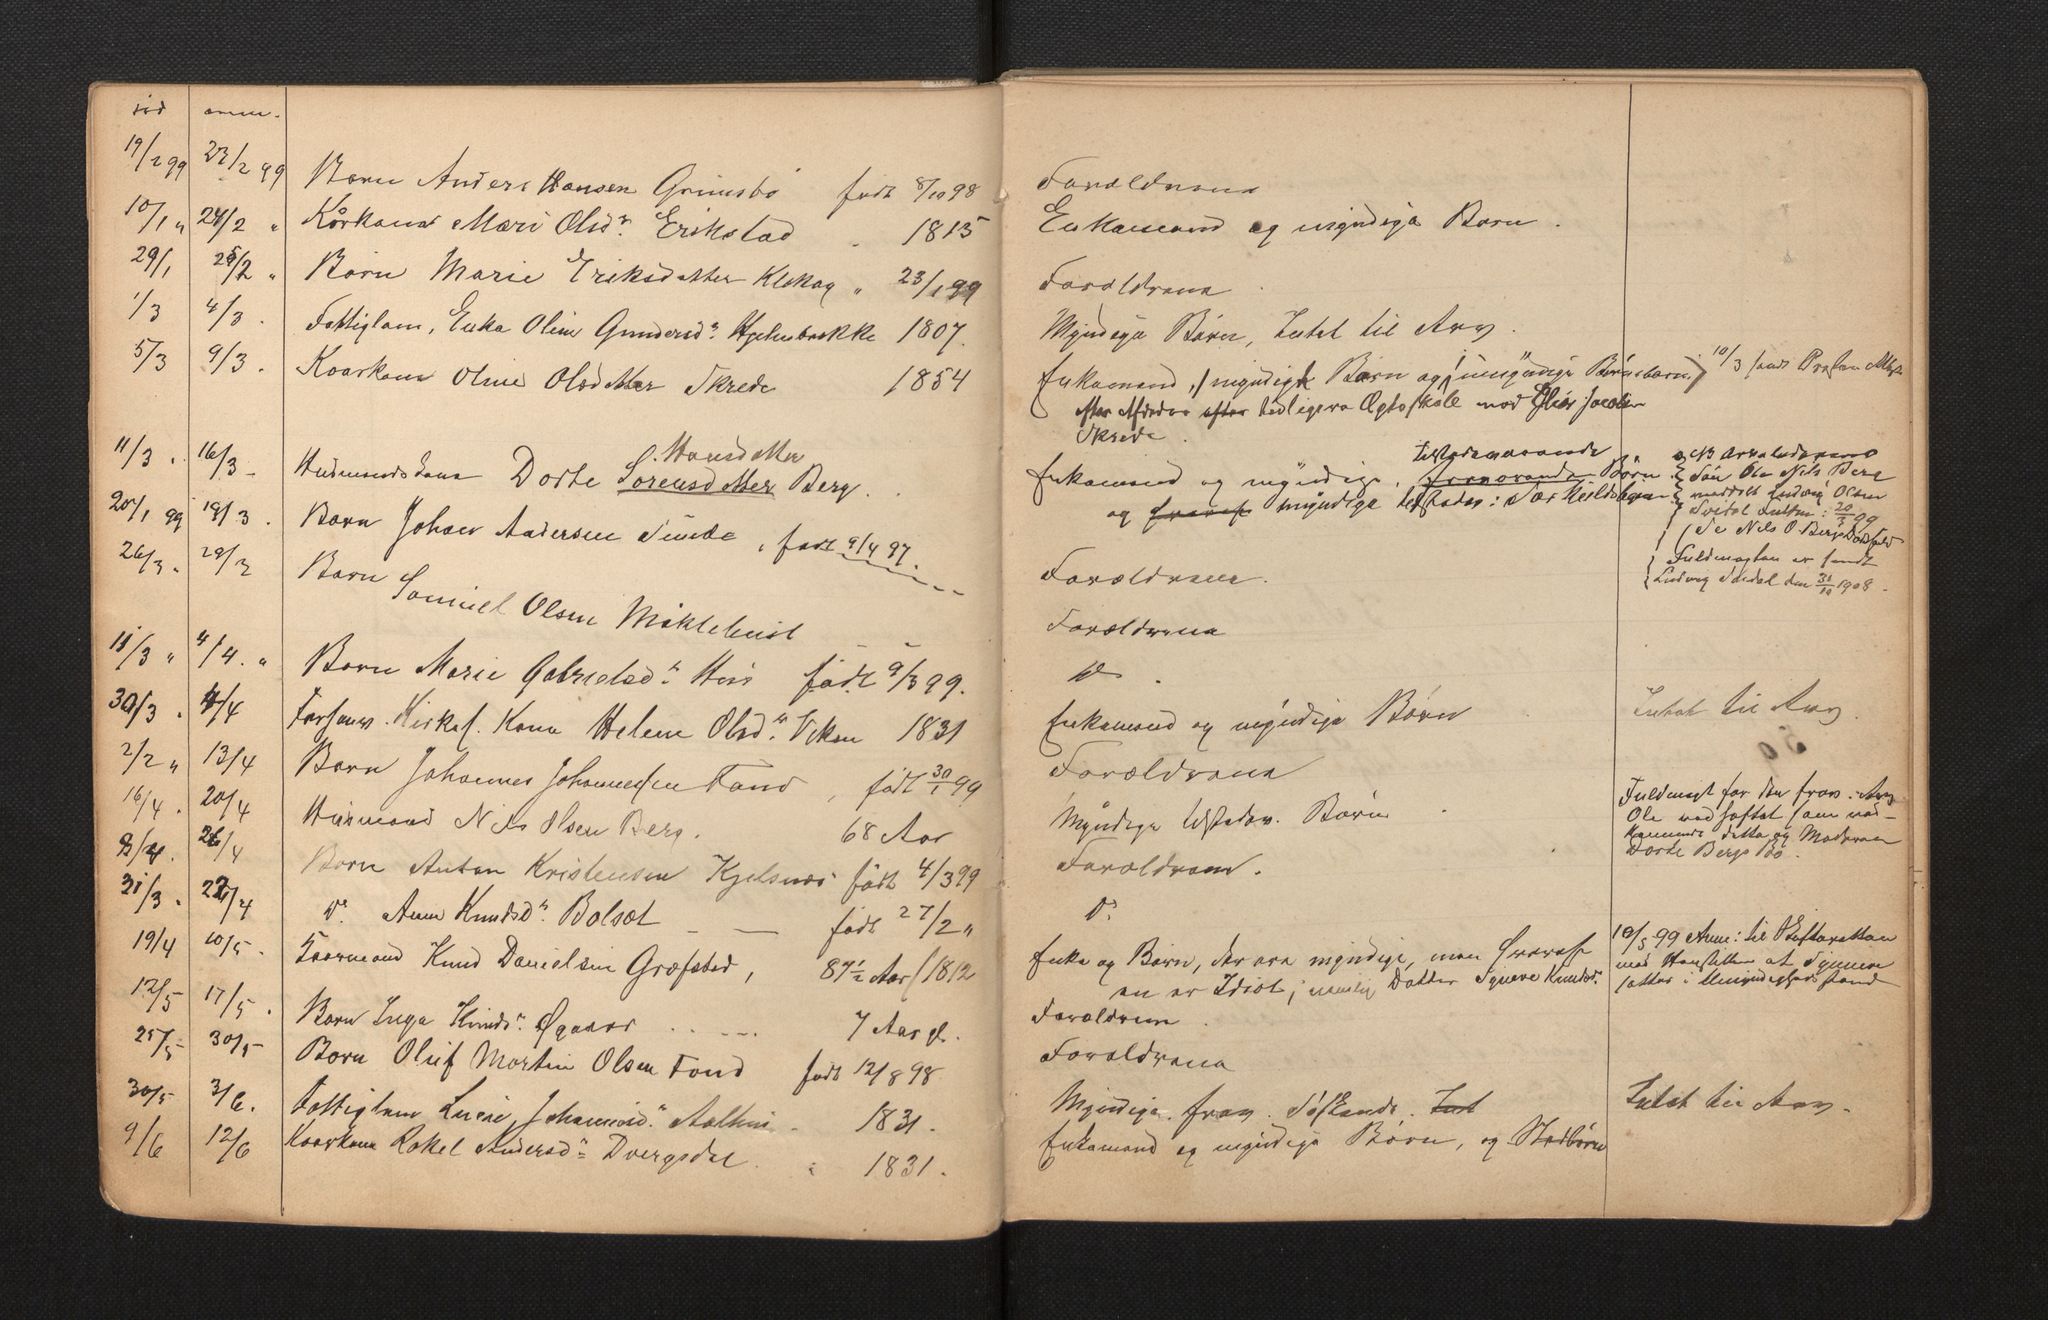 død anm.
19/2 99 23/2 99 Barn Anders Hansen Grimsbö født 8/10 98 Forældrene
10/1 " 24/2 " Kårkone Mari Olsdr. Erikstad " 1815 Enkemand og myndige Børn.
29/1 25/2 " Barn Marie Eriksdatter Klakeg " 23/1 99 Forældrene
1/3 4/3. Fattiglem, Enke Oline Gundersdr Hjelmbrekke 1807. Myndige Børn, Intet til Arv.
5/3 9/3. Kaarkone Oline Olsdatter Skrede 1854 Enkemand, 1 myndigt Barn og umyndige Børnebørn 10/3 sendt
efter Afdødes efter tidligere Ægteskab med Elias Jacobsen
Skrede.
11/3. 16/3 Husmandskone Dorte Sørensdatter Hansdatter Berg. Enkemand og myndige, fraværende tilstedeværende Børn
og fravær myndige tilstedev: Særkuldsbørn
NB
Søn Ole Nils Berg
meddelt Ludvig Olsen
20/3 99
Se Nils O Bergs Dødsfald
Fuldmagten er sendt
Ludvig den 31/10 1908.
20/1 99 19/3. Barn Johan Andersen Sunde, født 9/4 97. Forældrene.
26/3. 29/3 Barn Samuel Olsen Myklebust Forældrene
11/3 " 4/4. " Barn Marie Gabrielsdr. Hus født 9/3 99. D.
30/3. 4/4 Forhenv. Kirkes. Kone Helene Olsdr. Viken 1831 Enkemand og myndige Børn Intet til Arv.
2/2 " 13/4 Barn Johannes Johannessen Fond, født 30/1 99 Forældrene
16/4. 20/4 Husmand Nils Olsen Berg. 68 Aar Myndige tilstedev. Børn.
Fuldmagt for den frav. Arv
Ole vedhæftet som ved-
kommende dette og Moderen
Dorte Bergs Bo.
8/4. 26/4 Barn Anton Kristensen Kjelsnes født 4/3 99 Forældrene.
31/3. 27/4 D. Anne Knudsdr. Bolset født 27/2 " D.
19/4 10/5. Kaarmand Knud Danielsen Græfstad, 87½ Aar (1812 Enke og Børn, der ere myndige, men hvoraf
en er Idiot; nemlig Datter Synneve Knudsdr.
10/5 99 Anm: til Skifteretten
med Henstillen at Synneve
sættes i Umyndighedsstand
12/5 17/5. Barn Inga Knudsdr. Øgaard 7 Aar gl. Forældrene.
25/5 30/5 Barn Oluf Martin Olsen Fond født 12/8 98. Forældrene
30/5 3/6. Fattiglem Lucie Johannesdr. 1831. Myndige frav. Søskende. Int Intet til Arv.
9/6 12/6 Kaarkone Rakel Andersdr Dvergsdal. 1831. Enkemand og myndige Børn, og Stedbørn